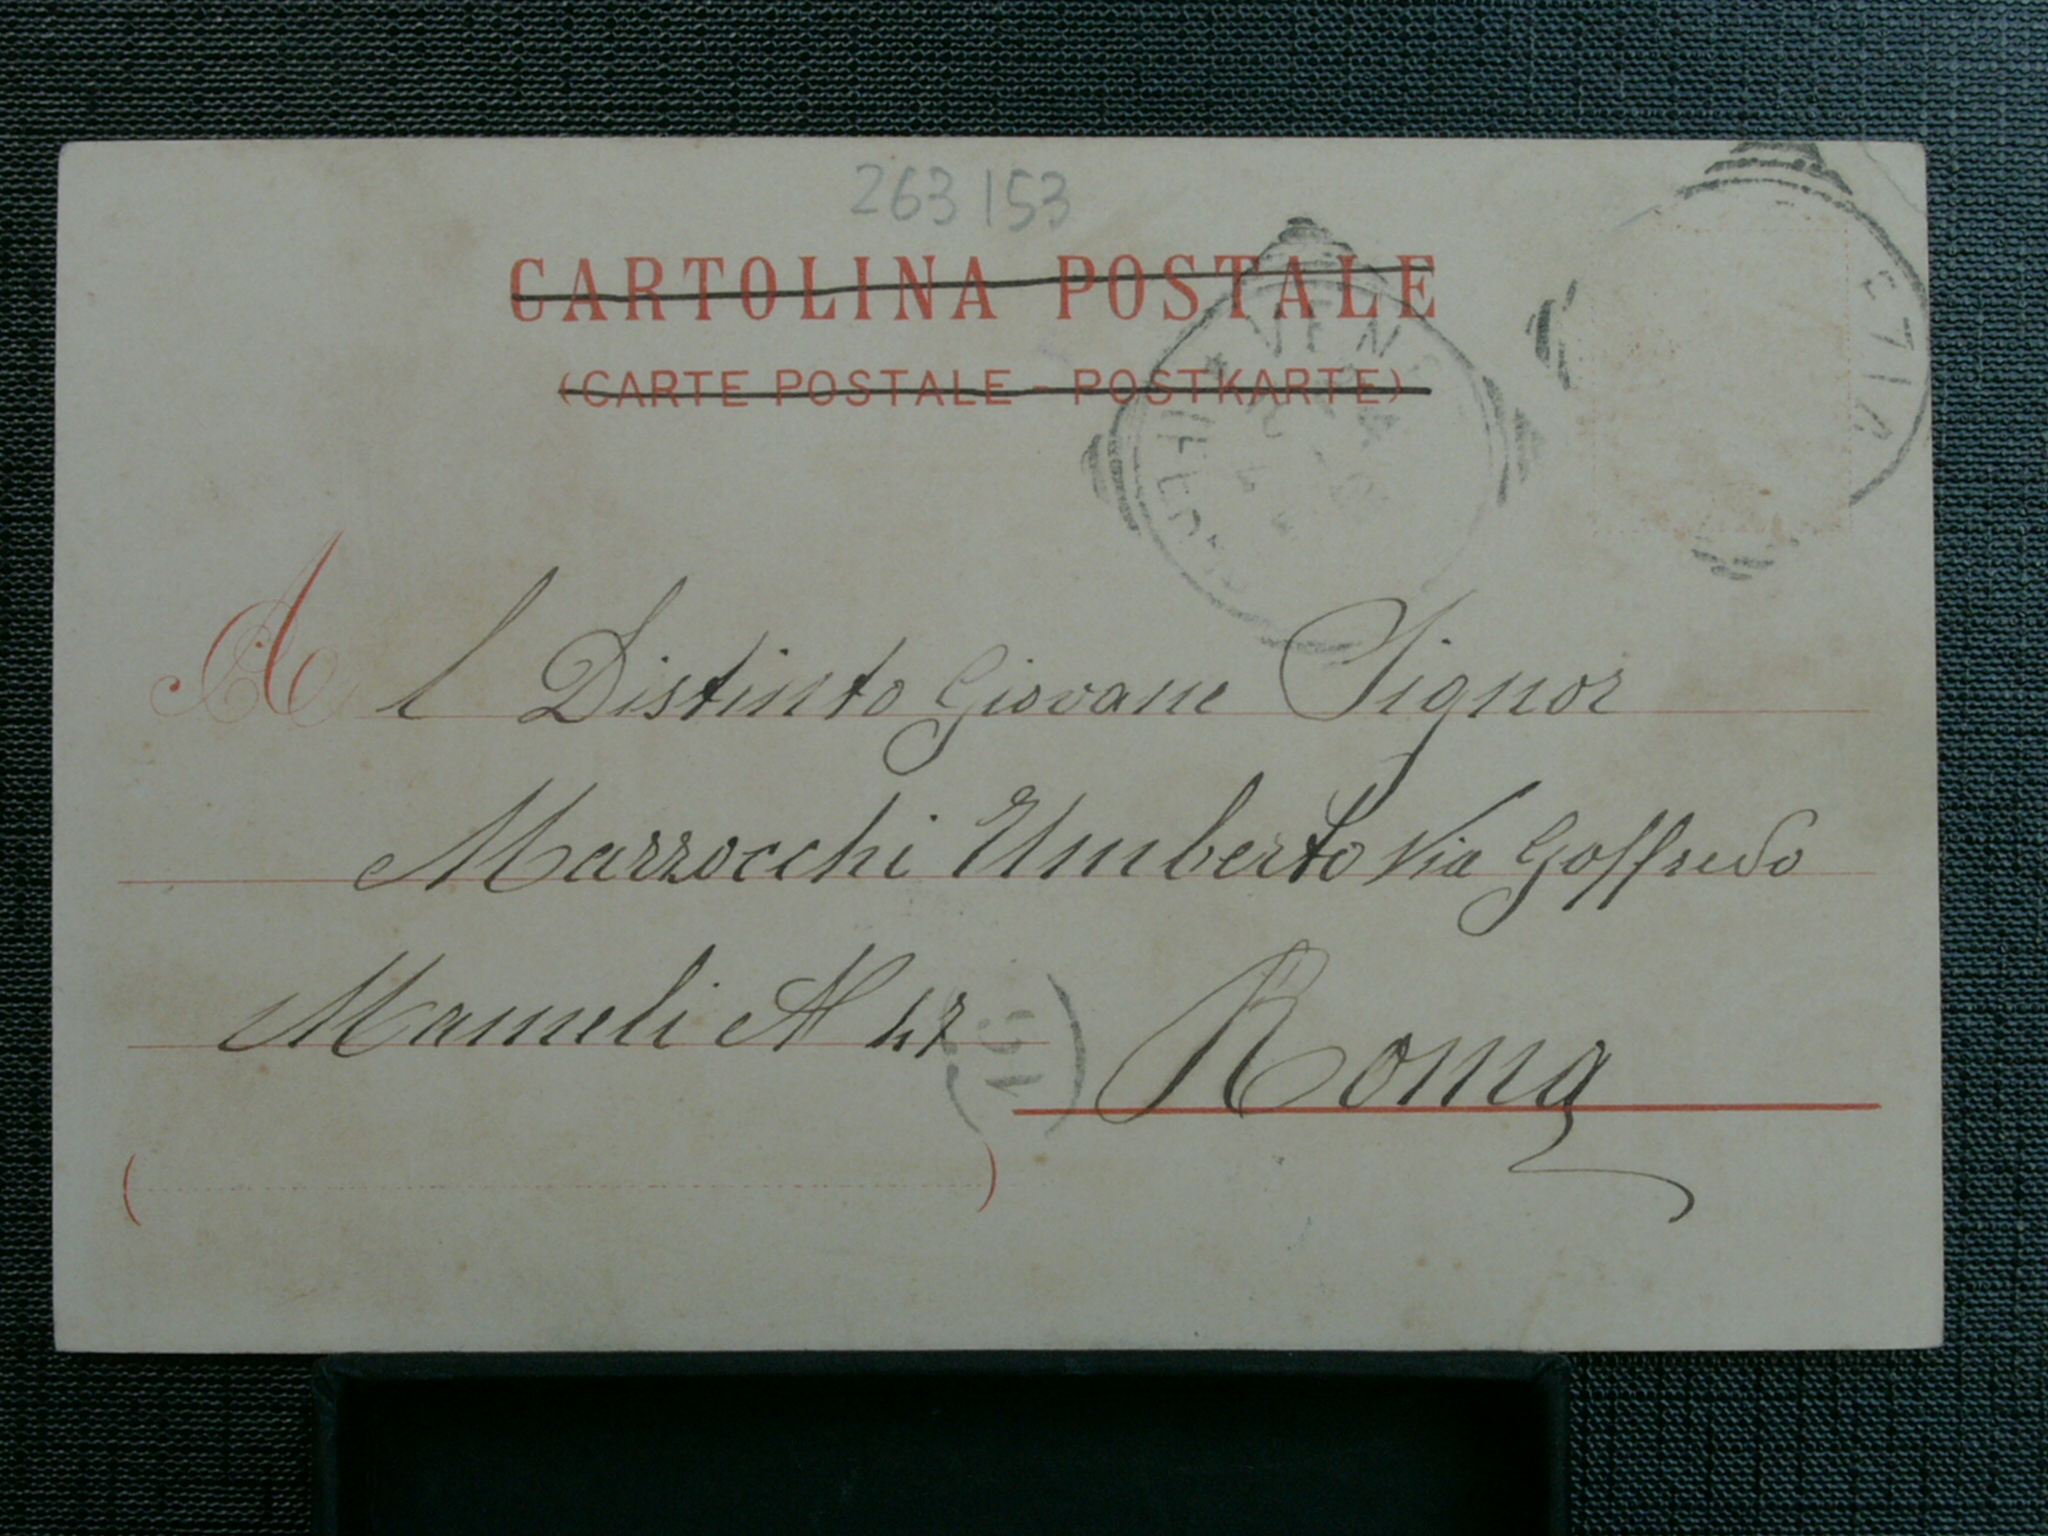 263153
CARTOLINA POSTALE
(CARTE POSTALE - POSTKARTE)
VENE
EZIA
Al Distinto Giovane Signor
Marzocchi Umberto Via Goffredo
Mameli N 47
Roma